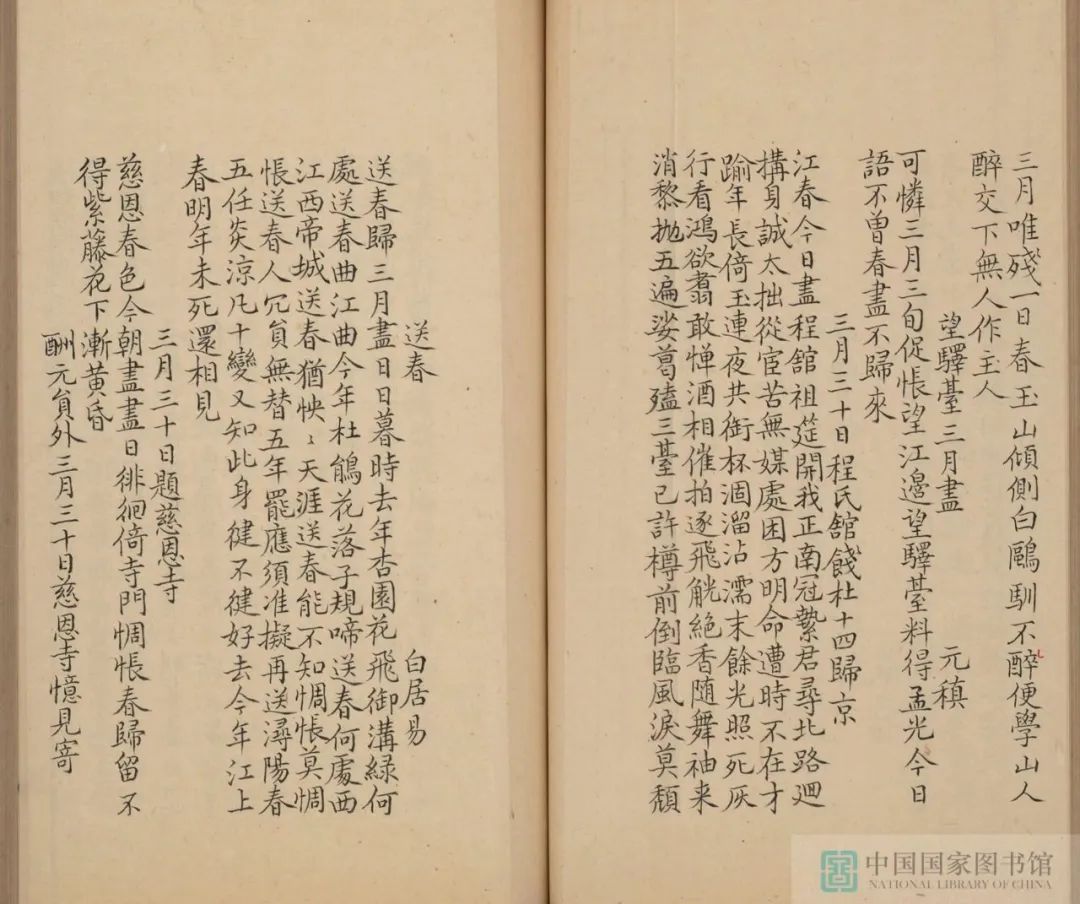 三月唯殘一日春玉山傾側白鷗馴不醉便學山人
醉交下無人作主人
望驛臺三月盡　元稹
可憐三月三旬促悵望江邊望驛臺料得孟光今日
語不曾春盡不歸來
三月三十日程氏館餞杜十四歸京
江春今日盡程館祖筵開我正南冠縶君尋北路迴
搆身誠太拙從宦苦無媒處困方明命遭時不在才
踰年長倚玉連夜共銜杯涸溜沾濡末餘光照死灰
行看鴻欲翥敢憚酒相催拍逐飛觥絕香隨舞袖来
消黎抛五遍娑葛磕三臺已許樽前倒臨風淚莫頹
送春　白居易
送春歸三月盡日日暮時去年杏園花飛御溝綠何
處送春曲江曲今年杜鵑花落子規啼送春何處西
江西帝城送春猶怏〻天涯送春能不知惆悵莫惆
悵送春人冗負無替五年罷應須准擬再送潯陽春
五任炎涼凡十變又知此身健不健好去今年江上
春明年未死還相見
三月三十日題慈恩寺
慈恩春色今朝盡盡日徘徊倚寺門惆悵春歸留不
得紫藤花下漸黄昏
酬元負外三月三十日慈恩寺憶見寄
中国国家图书馆
NATIONAL LIBRARY OF CHINA